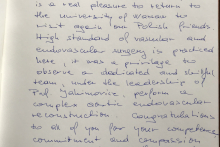 is a real pleasure to return to
the university of warsaw to
visit again our Polish friends
High standard of vascular and
endovascular surgery is practiced
here, it was a privilege to
observe a dedicated and skilful
team, under the leadership of
Prof Jakimowicz, perform a
complex aortic endovascular
reconstruction Congratulations
to all of you for your competence,
commitment and compassion